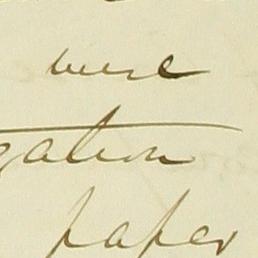 were
gation
paper